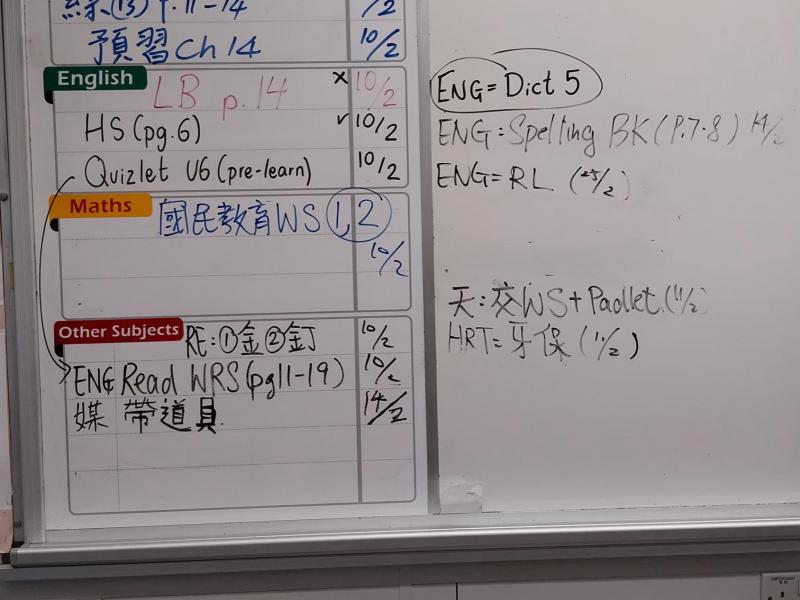 練(13) p.11-14 /2
預習Ch 14 10/2
English
LB p.14 x 10/2
HS (pg.6) ✓ 10/2
Quizlet U6 (pre-learn) 10/2
Maths
國民教育WS 1,2
10/2
Other Subjects
RE: ①金②釘 10/2
ENG Read WRS (pg11-19) 10/2
媒 帶道具 14/2
ENG = Dict 5
ENG: Spelling BK (P.7-8) 14/2
ENG = RL (25/2)
天: 交WS + Padlet (11/2)
HRT = 牙保 (11/2)